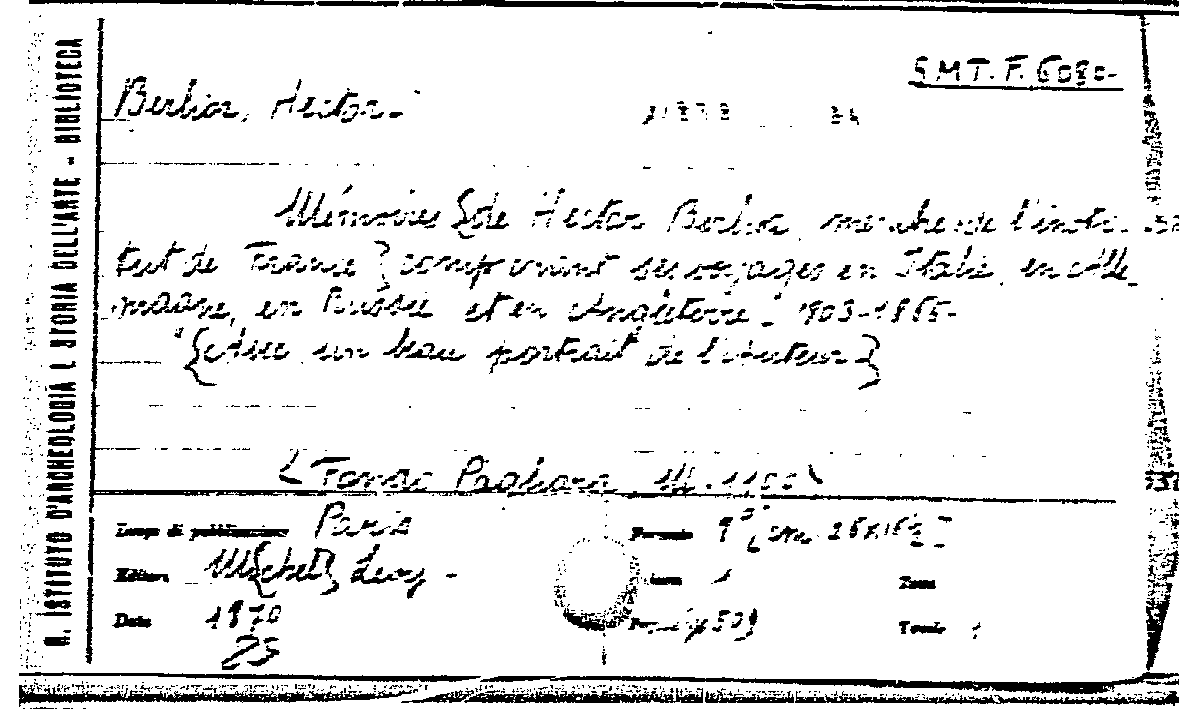 R. ISTITUTO D'ARCHEOLOGIA E STORIA DELL'ARTE - BIBLIOTECA
S.M.T. F. 6080-
Berlioz, Hector.-
Mémoires {de Hector Berlioz, membre de l'insti-
tut de France} comprenant ses voyages en Italie, en Alle-
magne, en Russie et en Angleterre.- 1803-1865-
{Avec un beau portrait de l'Auteur}
(Fondo Pagliara M. 1100)
Luogo di pubblicazione Paris
Formato 8° [cm. 26x16½]
Editore Mi{chel} Levy -
Data 1870
Pagine 509
Totale 1
25